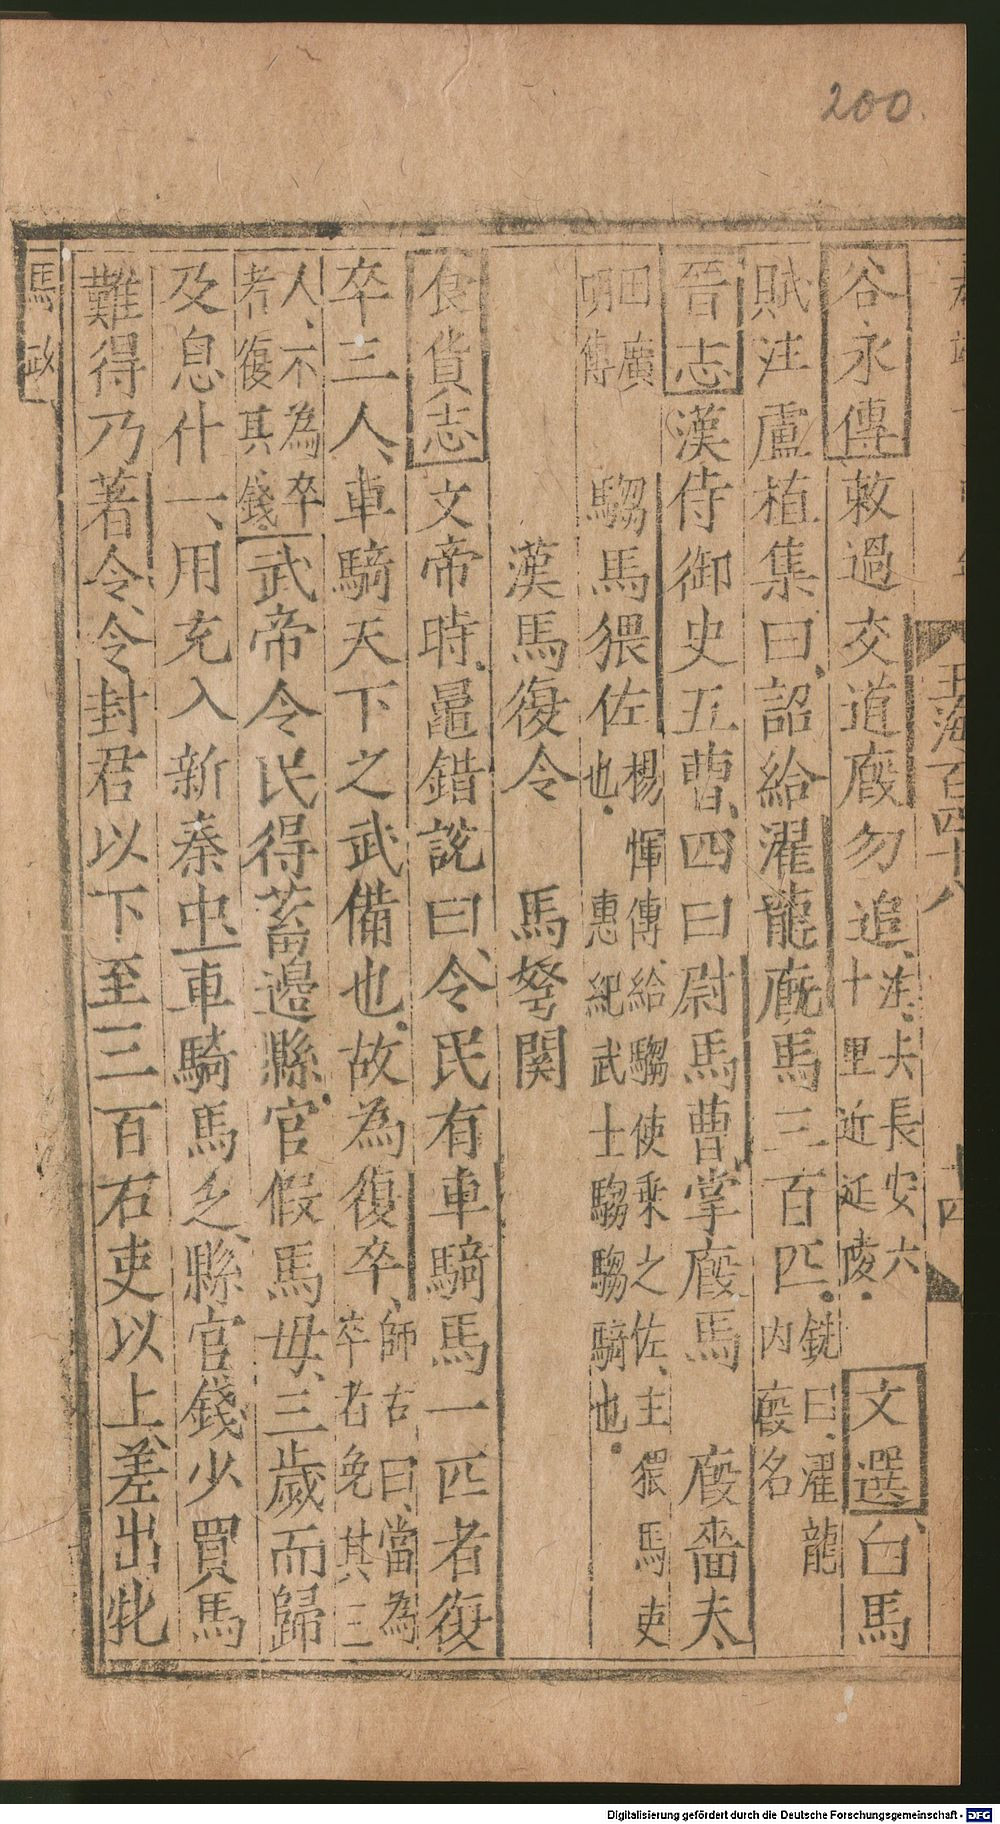 200
玉海百四十八
十四
谷永傳敕過交道廄勿追注夫長安六十里近延陵文選白馬
賦注盧植集曰詔給濯龍廄馬三百匹銑曰濯龍內廄名
晉志漢侍御史五曹四曰尉馬曹掌廄馬 廄嗇夫
田廣明傳 騶馬猥佐楊惲傳給騶使乘之佐主猥馬吏也惠紀武士騶騶騎也
漢馬復令 馬弩關
食貨志文帝時鼂錯說曰令民有車騎馬一匹者復
卒三人車騎天下之武備也故為復卒師古曰當為卒者免其三
人不為卒者復其錢武帝令民得蓄邊縣官假馬毋三歲而歸
及息什一用充入新秦中車騎馬乏縣官錢少買馬
難得乃著令令封君以下至三百石吏以上差出牝
馬政
Digitalisierung gefördert durch die Deutsche Forschungsgemeinschaft - DFG